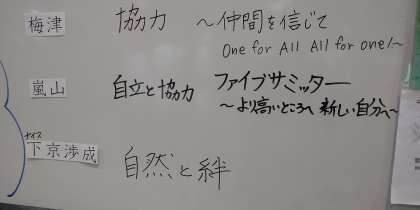 梅津 協力 ~仲間を信じて
One for All All for one!~
嵐山 自立と協力 ファイブサミッター
~より高いところへ 新しい自分へ~
ナイス
下京渉成 自然と絆